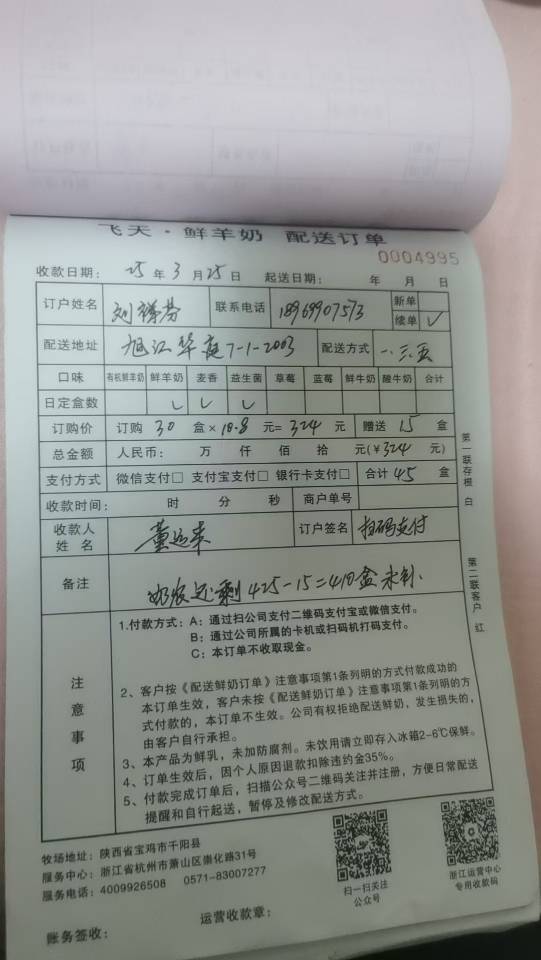 飞天·鲜羊奶 配送订单
0004995
收款日期: 25 年 3 月 25 日 起送日期: 年 月 日
订户姓名 刘祥芬 联系电话 18969907573 新单
续单 ✓
配送地址 旭江华庭7-1-2003 配送方式 一.三.五
口味 有机鲜羊奶 鲜羊奶 麦香 益生菌 草莓 蓝莓 鲜牛奶 酸牛奶 合计
日定盒数 ✓ ✓ ✓
订购价 订购 30 盒× 10.8 元= 324 元 赠送 15 盒
总金额 人民币: 万 仟 佰 拾 元(¥ 324 元)
支付方式 微信支付□ 支付宝支付□ 银行卡支付□ 合计 45 盒
收款时间: 时 分 秒 商户单号
收款人姓名 董 订户签名 扫码支付
备注 还剩 425-15=410盒
注意事项
1.付款方式: A: 通过扫公司支付二维码支付宝或微信支付。
B: 通过公司所属的卡机或扫码机打码支付。
C: 本订单不收取现金。
2、客户按《配送鲜奶订单》注意事项第1条列明的方式付款成功的
本订单生效,客户未按《配送鲜奶订单》注意事项第1条列明的方
式付款的,本订单不生效。公司有权拒绝配送鲜奶,发生损失的,
由客户自行承担。
3、本产品为鲜乳,未加防腐剂。未饮用请立即存入冰箱2-6℃保鲜。
4、订单生效后,因个人原因退款扣除违约金35%。
5、付款完成订单后,扫描公众号二维码关注并注册,方便日常配送
提醒和自行起送,暂停及修改配送方式。
第一联存根 白
第二联客户 红
牧场地址: 陕西省宝鸡市千阳县
服务中心: 浙江省杭州市萧山区崇化路31号
服务电话: 4009926508 0571-83007277
扫一扫关注
公众号
浙江运营中心
专用收款码
运营收款章:
账务签收: